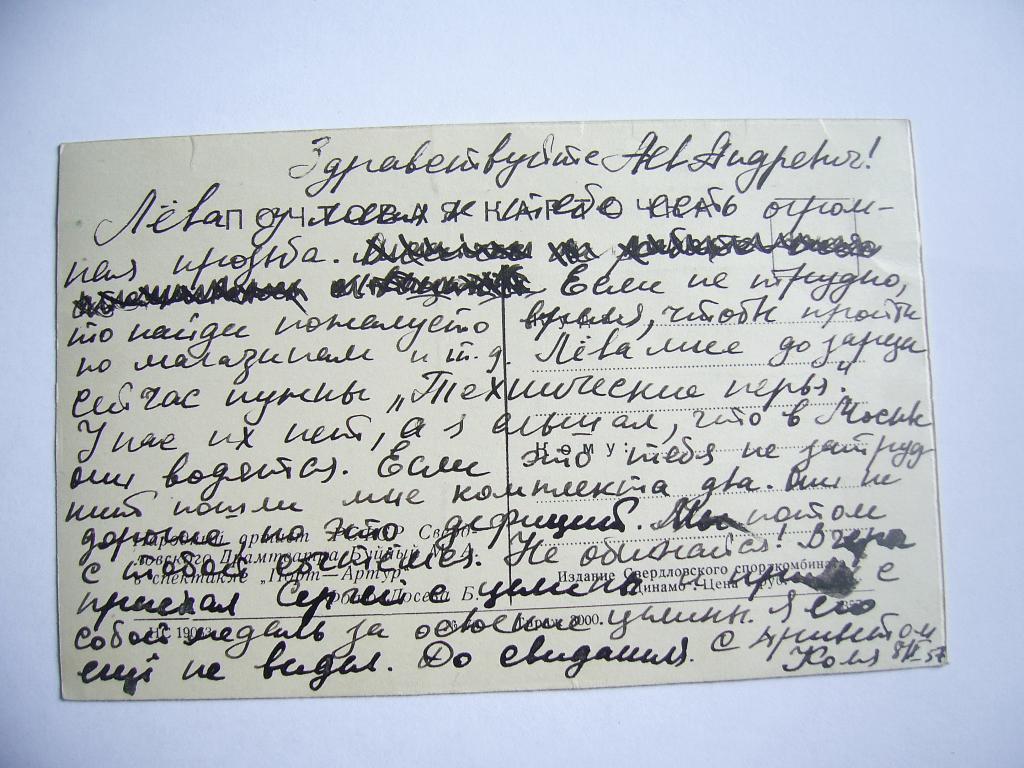 Здравствуйте Лев Андревич!
Лёва у меня к тебе есть огром-
ПОЧТОВАЯ КАРТОЧКА
ная прозьба.
Если не трудно,
то найди пожалусто время, чтобы пройти
по магазинам и т.д. Лёва мне до зареза
сейчас нужны „Технические перья".
У нас их нет, а я слышал, что в Москве
Кому:
они водятся. Если это тебя не затруд
нит пошли мне комплекта два. Они не
дорогие но это дефицит. Мы потом
Народный артист РСФСР Сверд-
ловского Драмтеатра Буйный М. А.
с тобой сочтемся. Не обижайся! Вчера
спектакль „Порт—Артур"
Издание Свердловского спорткомбината
„Динамо". Цена руб.
Фото Лосева Б.
приехал Сергей с целины и с
собой медаль за освоение целины. Я его
НС 19033 Тираж 3000.
ещё не видел. До свидания. С приветом
Коля 57